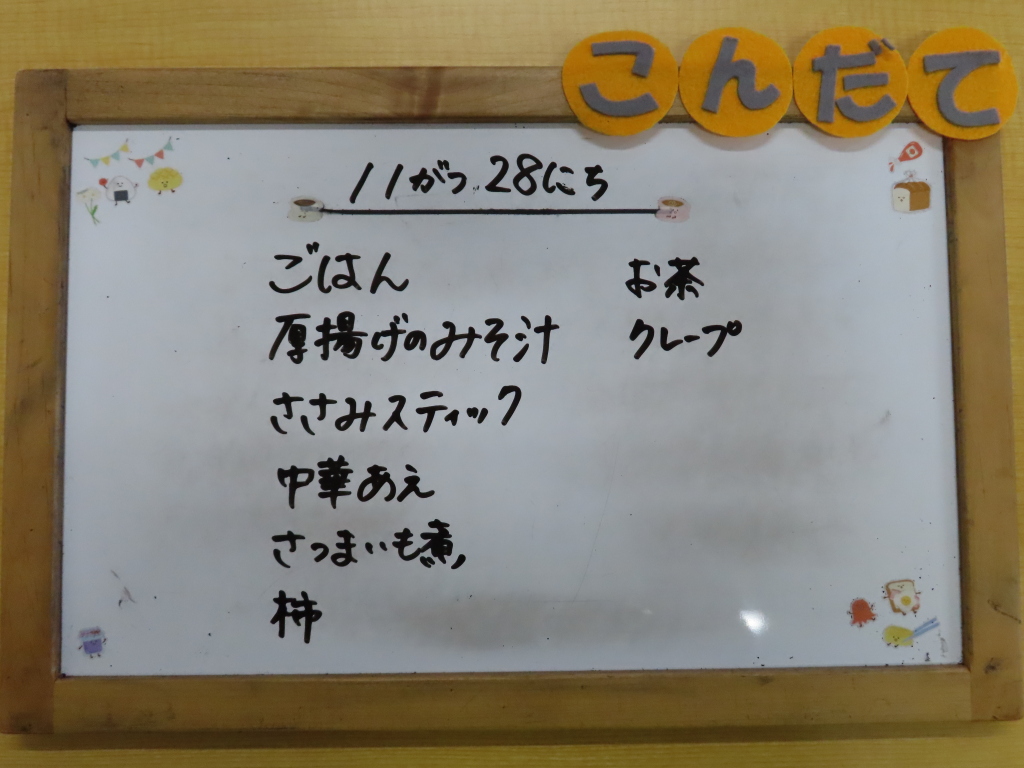 こんだて
11がつ28にち
ごはん
厚揚げのみそ汁
ささみスティック
中華あえ
さつまいも煮
柿
お茶
クレープ